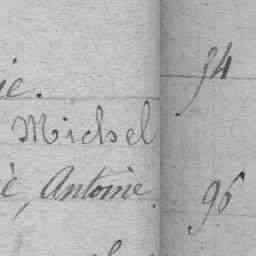 ie. 54
Michel
è, Antoine. 96